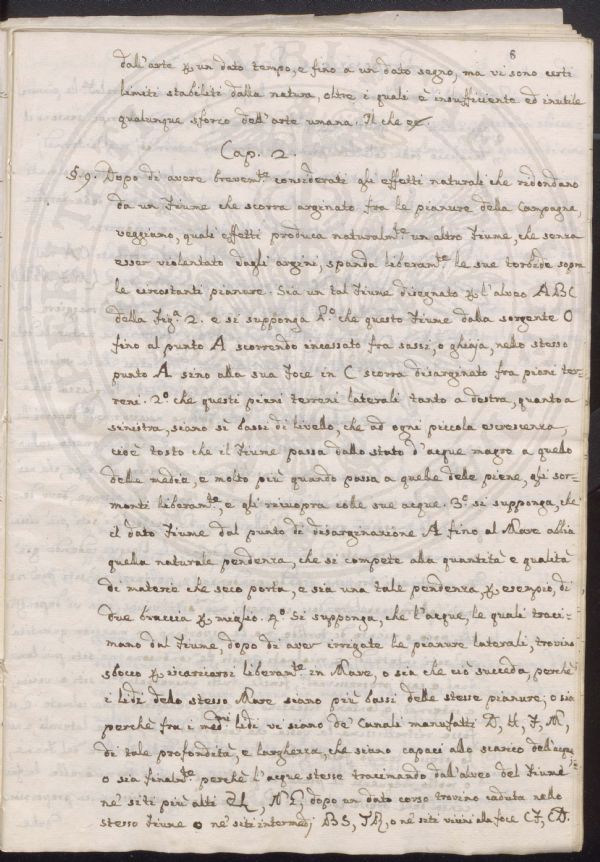 8
dall'arte p un dato tempo, e fino a un dato segno, ma vi sono certi
limiti stabiliti dalla natura, oltre i quali è insufficiente ed inutile
qualunque sforzo dell'arte umana. Il che &c.
Cap. 2.
§. 9. Dopo di avere brevemte considerati gli effetti naturali che ridondano
da un Fiume che scorra arginato fra le pianure della Campagna,
veggiamo, quali effetti produca naturalmte un altro Fiume, che senza
esser violentato dagli argini, spanda liberamte le sue torbide sopra
le circostanti pianure. Sia un tal Fiume disegnato p l'alveo ABC
della Figa 2. e si supponga P.o che questo Fiume dalla sorgente O
fino al punto A scorrendo incassato fra sassi, o ghiaja, nello stesso
punto A sino alla sua foce in C scorra disarginato fra piani ter=
reni. 2o che questi piani terreni laterali tanto a destra, quanto a
sinistra, siano sì bassi di livello, che ad ogni piccola escrescenza,
cioè tosto che il Fiume passa dallo stato d'acque magre a quello
delle medie, e molto più quando passa a quelle delle piene, gli sor=
monti liberamte, e gli ricuopra colle sue acque. 3o si supponga, che
il dato Fiume dal punto di disarginazione A fino al Mare abbia
quella naturale pendenza, che si compete alla quantità e qualità
di materie che seco porta, e sia una tale pendenza p esempio, di
due braccia p miglio. 4o Si supponga, che l'acque, le quali traci=
mano dal Fiume, dopo di aver irrigate le pianure laterali, trovino
sbocco p iscaricarsi liberamte in Mare, o sia che ciò succeda, perchè
i lidi dello stesso Mare siano più bassi delle stesse pianure; o sia
perchè fra i medmi lidi vi siano de' Canali manufatti D, H, F, M,
di tale profondità, e larghezza, che siano capaci allo scarico dell'acque;
o sia finalmte perchè l'acque stesse tracimando dall'alveo del Fiume
ne' siti più alti dopo un dato corso trovino caduta nello
stesso Fiume o ne' siti intermedj BS, o ne' siti vicini alla foce CF, CD.